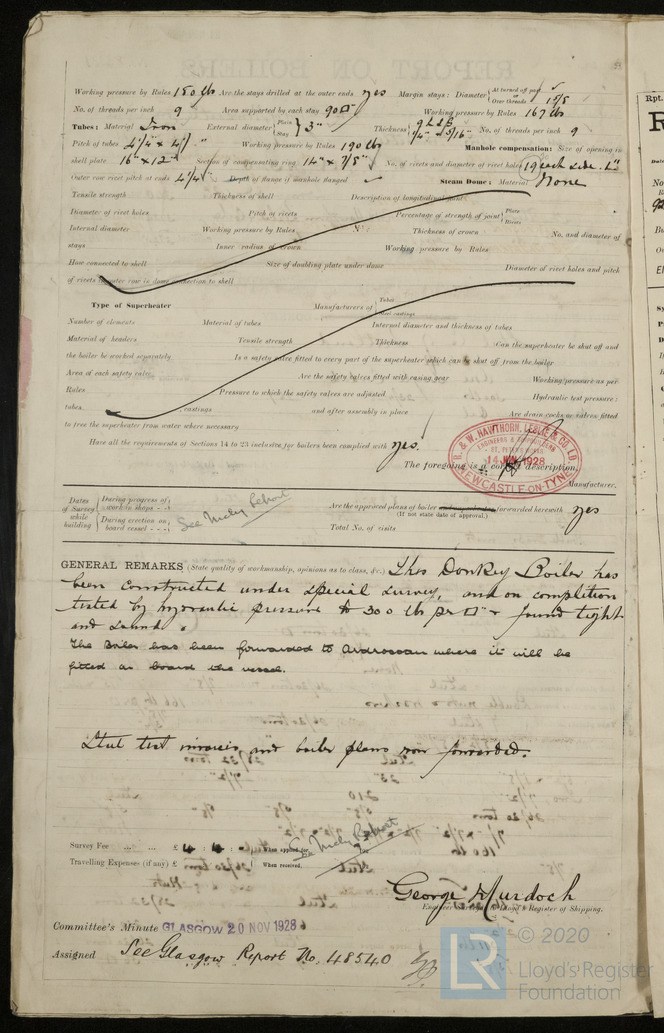 Working pressure by Rules 150 lb Are the stays drilled at the outer ends yes Margin stays: Diameter { At turned off part, Over threads 1 7/8
No. of threads per inch 9 Area supported by each stay 90 □" Working pressure by Rules 167 lb
Tubes: Material Iron External diameter { Plain Stay } 3" Thickness { 9 L.S.G 1/4" & 5/16" No. of threads per inch 9
Pitch of tubes 4 1/4" x 4 1/4" Working pressure by Rules 190 lb Manhole compensation: Size of opening in
shell plate 16" x 12" Section of compensating ring 14" x 7/8" No. of rivets and diameter of rivet holes 19 each side. 1"
Outer row rivet pitch at ends 4 1/4" Depth of flange if manhole flanged Steam Dome: Material None
Tensile strength Thickness of shell Description of longitudinal joint
Diameter of rivet holes Pitch of rivets Percentage of strength of joint { Plate Rivets
Internal diameter Working pressure by Rules Thickness of crown No. and diameter of
stays Inner radius of crown Working pressure by Rules
How connected to shell Size of doubling plate under dome Diameter of rivet holes and pitch
of rivets in outer row in dome connection to shell
Type of Superheater Manufacturers of { Tubes Steel castings
Number of elements Material of tubes Internal diameter and thickness of tubes
Material of headers Tensile strength Thickness Can the superheater be shut off and
the boiler be worked separately Is a safety valve fitted to every part of the superheater which can be shut off from the boiler
Area of each safety valve Are the safety valves fitted with easing gear Working pressure as per
Rules Pressure to which the safety valves are adjusted Hydraulic test pressure:
tubes, castings and after assembly in place Are drain cocks or valves fitted
to free the superheater from water where necessary
Have all the requirements of Sections 14 to 23 inclusive for boilers been complied with yes.
R. & W. HAWTHORN, LESLIE & CO. LD.
ENGINEERS & SHIPBUILDERS
ST. PETER'S WORKS
14 JUN 1928
NEWCASTLE-ON-TYNE
The foregoing is a correct description,
Manufacturer.
Dates of Survey while building { During progress of work in shops - - During erection on board vessel - - - See Mchy Report
Are the approved plans of boiler forwarded herewith yes
(If not state date of approval.)
Total No. of visits
GENERAL REMARKS (State quality of workmanship, opinions as to class, &c.) This Donkey Boiler has
been constructed under special survey, and on completion
tested by hydraulic pressure to 300 lb per □" & found tight
and sound.
The Boiler has been forwarded to Ardrossan where it will be
fitted on board the vessel.
Steel test invoices and boiler plans now forwarded.
Survey Fee ... ... £ 4 : 4 : When applied for,
See Mchy Report
Travelling Expenses (if any) £ When received,
George Murdoch
Engineer Surveyor to Lloyd's Register of Shipping.
Committee's Minute GLASGOW 20 NOV 1928
Assigned See Glasgow Report No. 48540
© 2020
LR
Lloyd's Register
Foundation
Rpt.